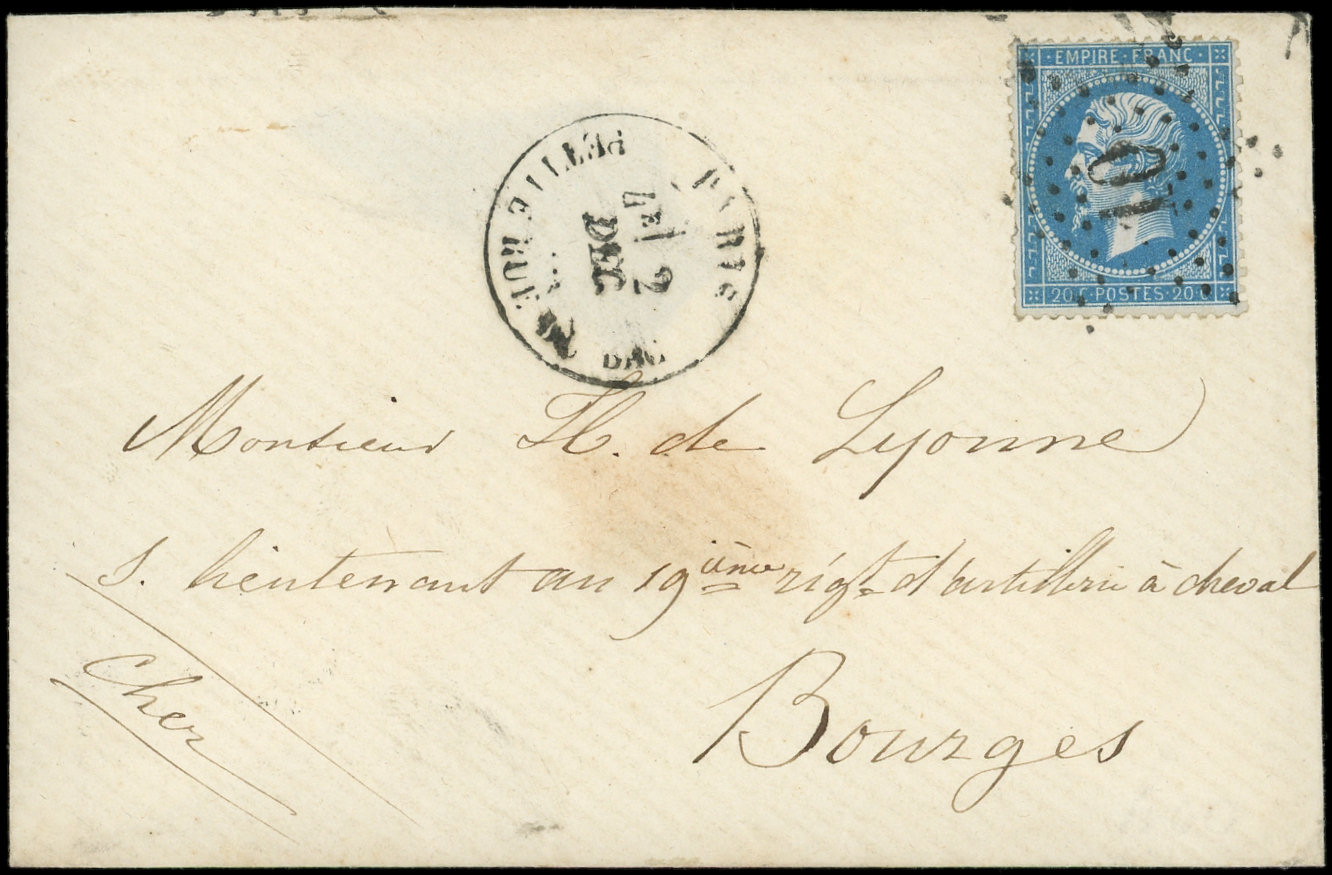 EMPIRE FRANC
20 C POSTES 20 C
10
PARIS
DEC
Monsieur H. de Lyonne
S. lieutenant au 19ième rigt d'artillerie à cheval
Bourges
Cher